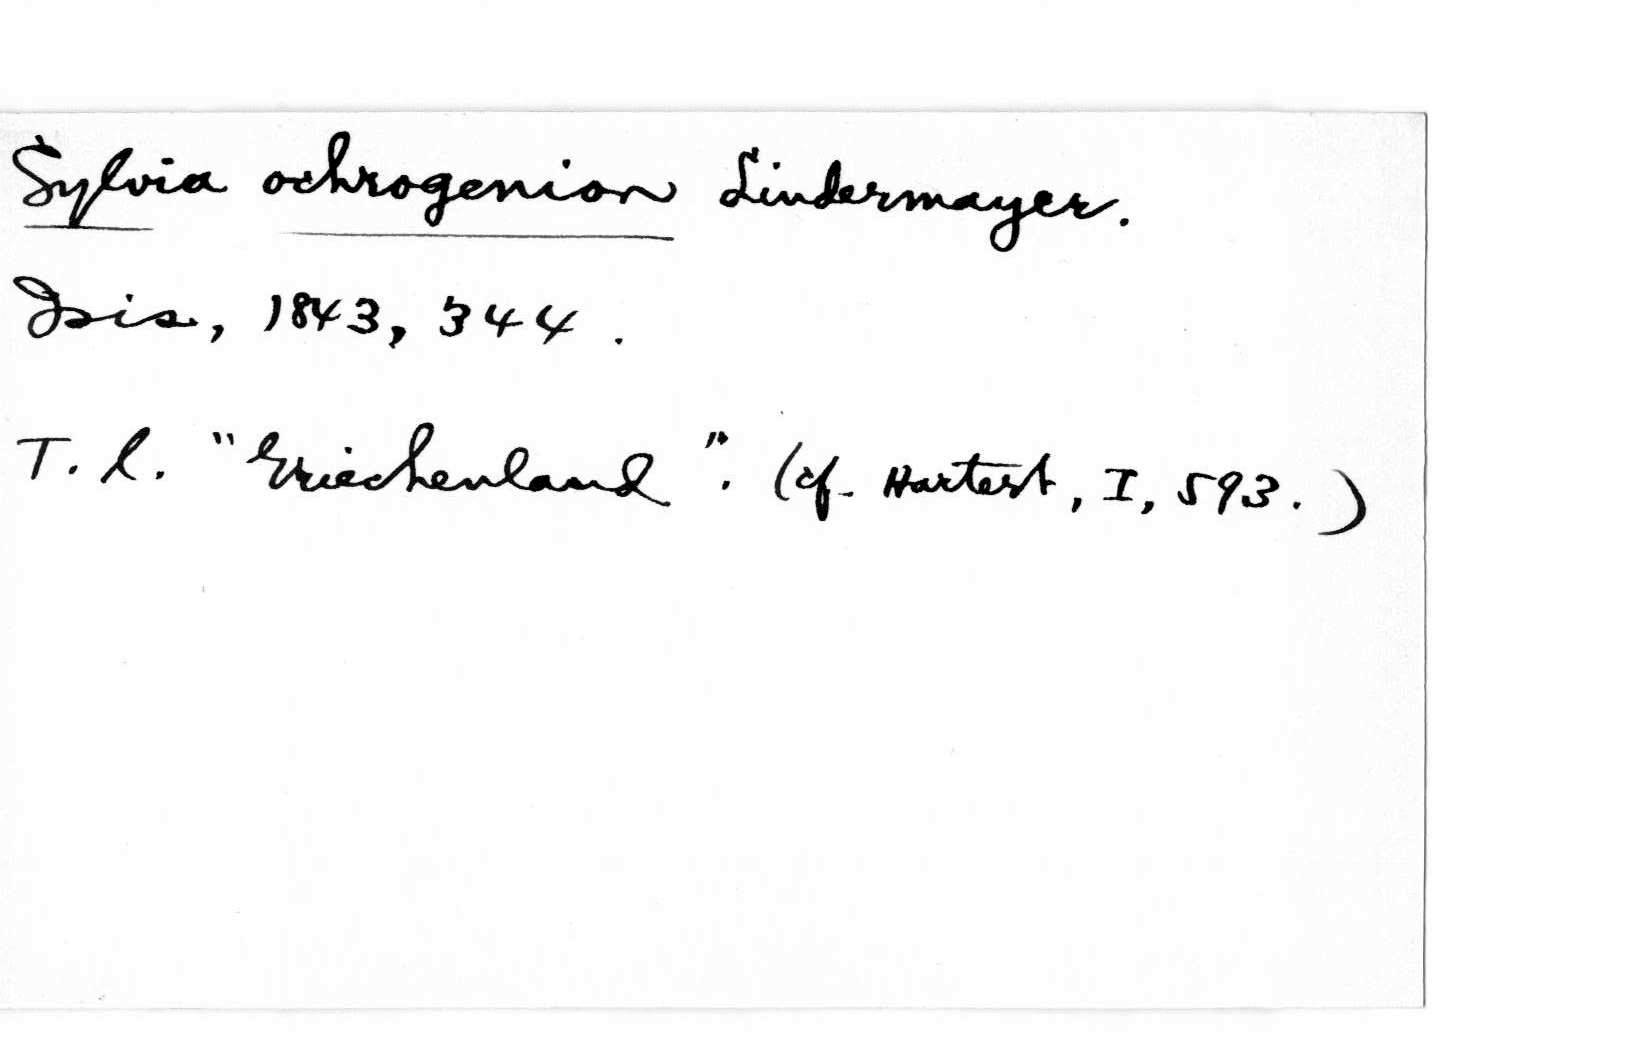 Sylvia ochrogenion Lindermayer.
Isis, 1843, 344.
T. l. "Griechenland". (cf. Hartert, I, 593.)